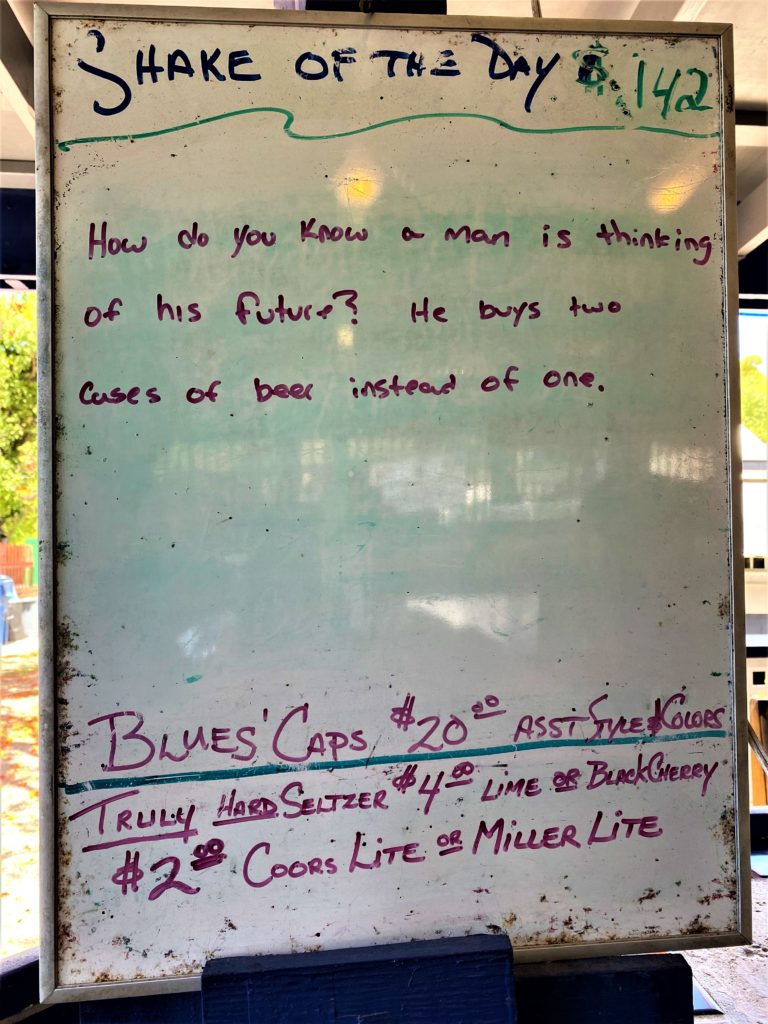 SHAKE OF THE DAY $ 142
How do you know a man is thinking
of his future? He buys two
cases of beer instead of one.
BLUES' CAPS $20.00 ASST STYLE & COLORS
TRULY HARD SELTZER $4.00 LIME OR BLACK CHERRY
$2.00 COORS LITE OR MILLER LITE